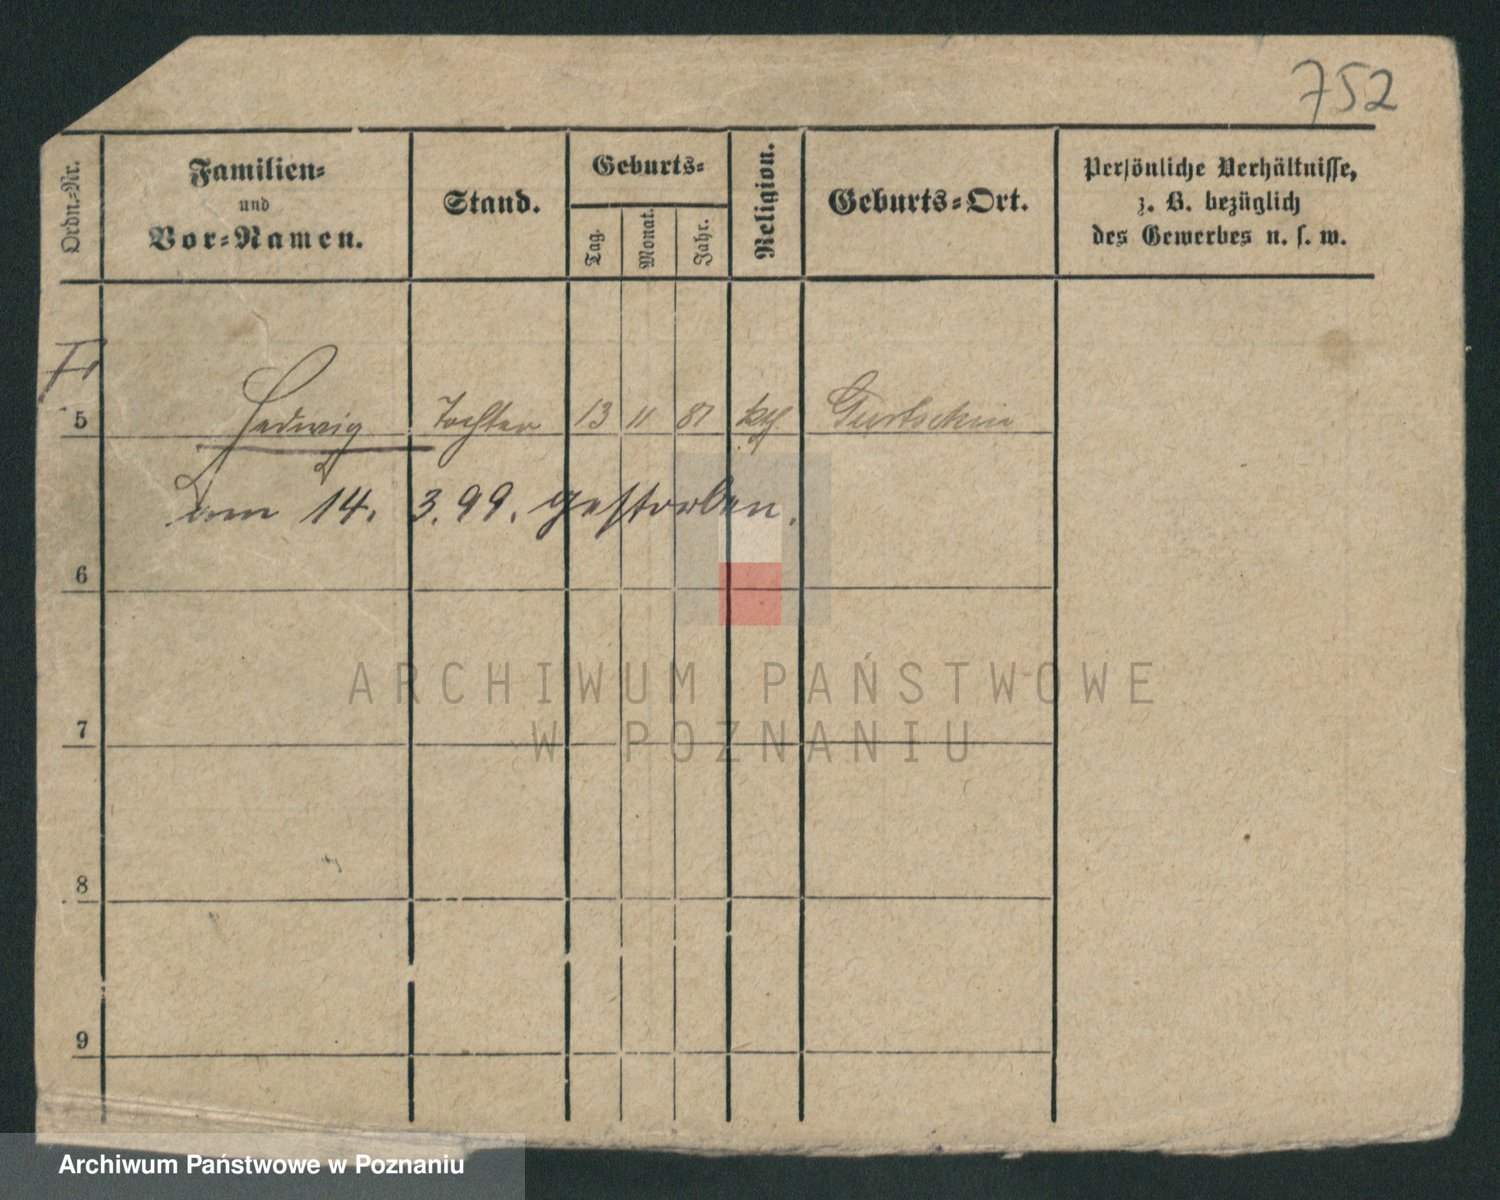 752
Ordn.-Nr.
Familien-
und
Vor-Namen.
Stand.
Geburts-
Tag.
Monat.
Jahr.
Religion.
Geburts-Ort.
Persönliche Verhältnisse,
z. B. bezüglich
des Gewerbes u. s. w.
5 Hedwig Tochter 13 11 87 kth
am 14. 3. 99. gestorben.
6
7
8
9
ARCHIWUM PAŃSTWOWE
W POZNANIU
Archiwum Państwowe w Poznaniu